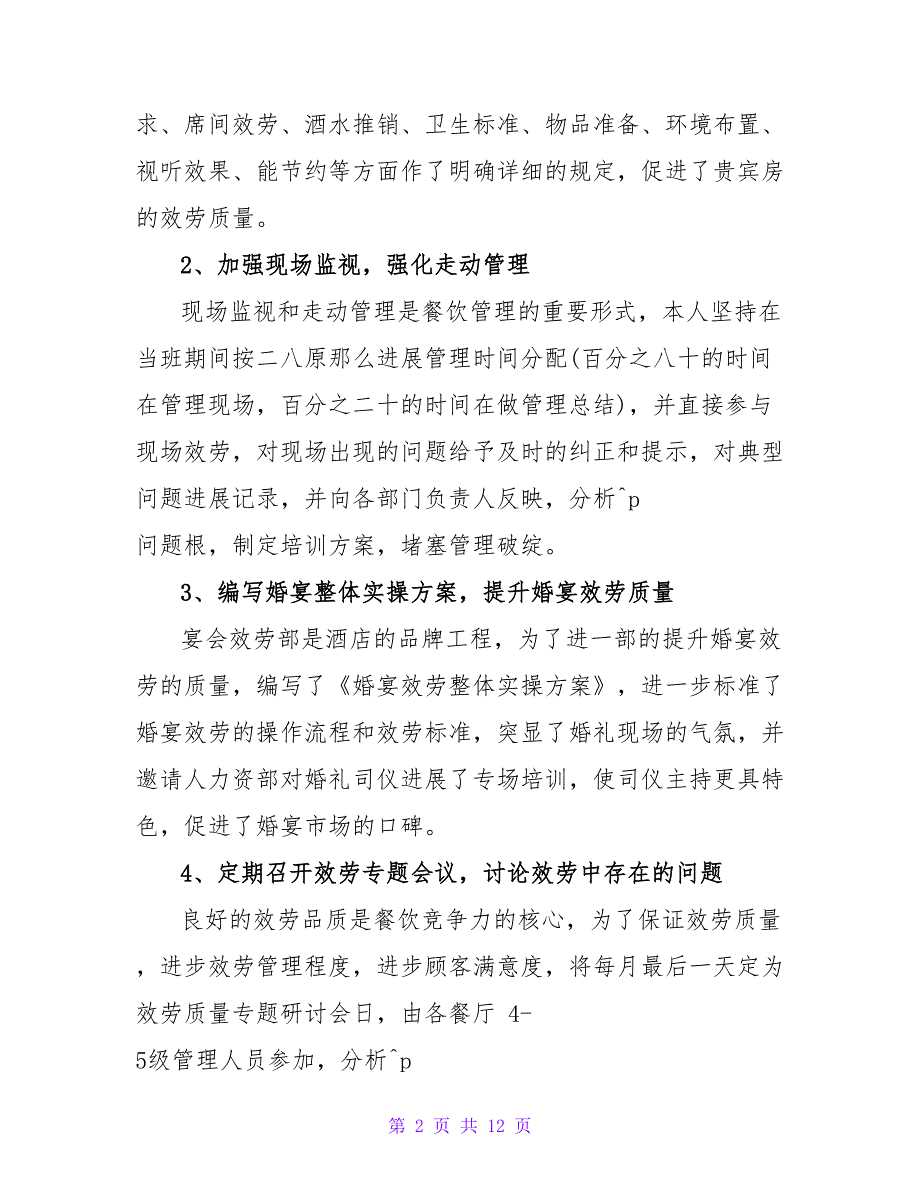 求、席间效劳、酒水推销、卫生标准、物品准备、环境布置、
视听效果、能节约等方面作了明确详细的规定，促进了贵宾房
的效劳质量。
2、加强现场监视，强化走动管理
现场监视和走动管理是餐饮管理的重要形式，本人坚持在
当班期间按二八原那么进展管理时间分配(百分之八十的时间
在管理现场，百分之二十的时间在做管理总结)，并直接参与
现场效劳，对现场出现的问题给予及时的纠正和提示，对典型
问题进展记录，并向各部门负责人反映，分析^p
问题根，制定培训方案，堵塞管理破绽。
3、编写婚宴整体实操方案，提升婚宴效劳质量
宴会效劳部是酒店的品牌工程，为了进一部的提升婚宴效
劳的质量，编写了《婚宴效劳整体实操方案》，进一步标准了
婚宴效劳的操作流程和效劳标准，突显了婚礼现场的气氛，并
邀请人力资部对婚礼司仪进展了专场培训，使司仪主持更具特
色，促进了婚宴市场的口碑。
4、定期召开效劳专题会议，讨论效劳中存在的问题
良好的效劳品质是餐饮竞争力的核心，为了保证效劳质量
，进步效劳管理程度，进步顾客满意度，将每月最后一天定为
效劳质量专题研讨会日，由各餐厅 4-
5级管理人员参加，分析^p
第 2 页 共 12 页